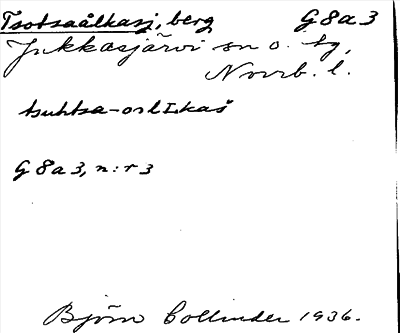 Tsotsaålkasj, berg G8a3
Jukkasjärvi sn o. tg,
Norrb. l.
tsuhtsa-oslɪkaš
G8a3, n:r 3
Björn Collinder 1936.